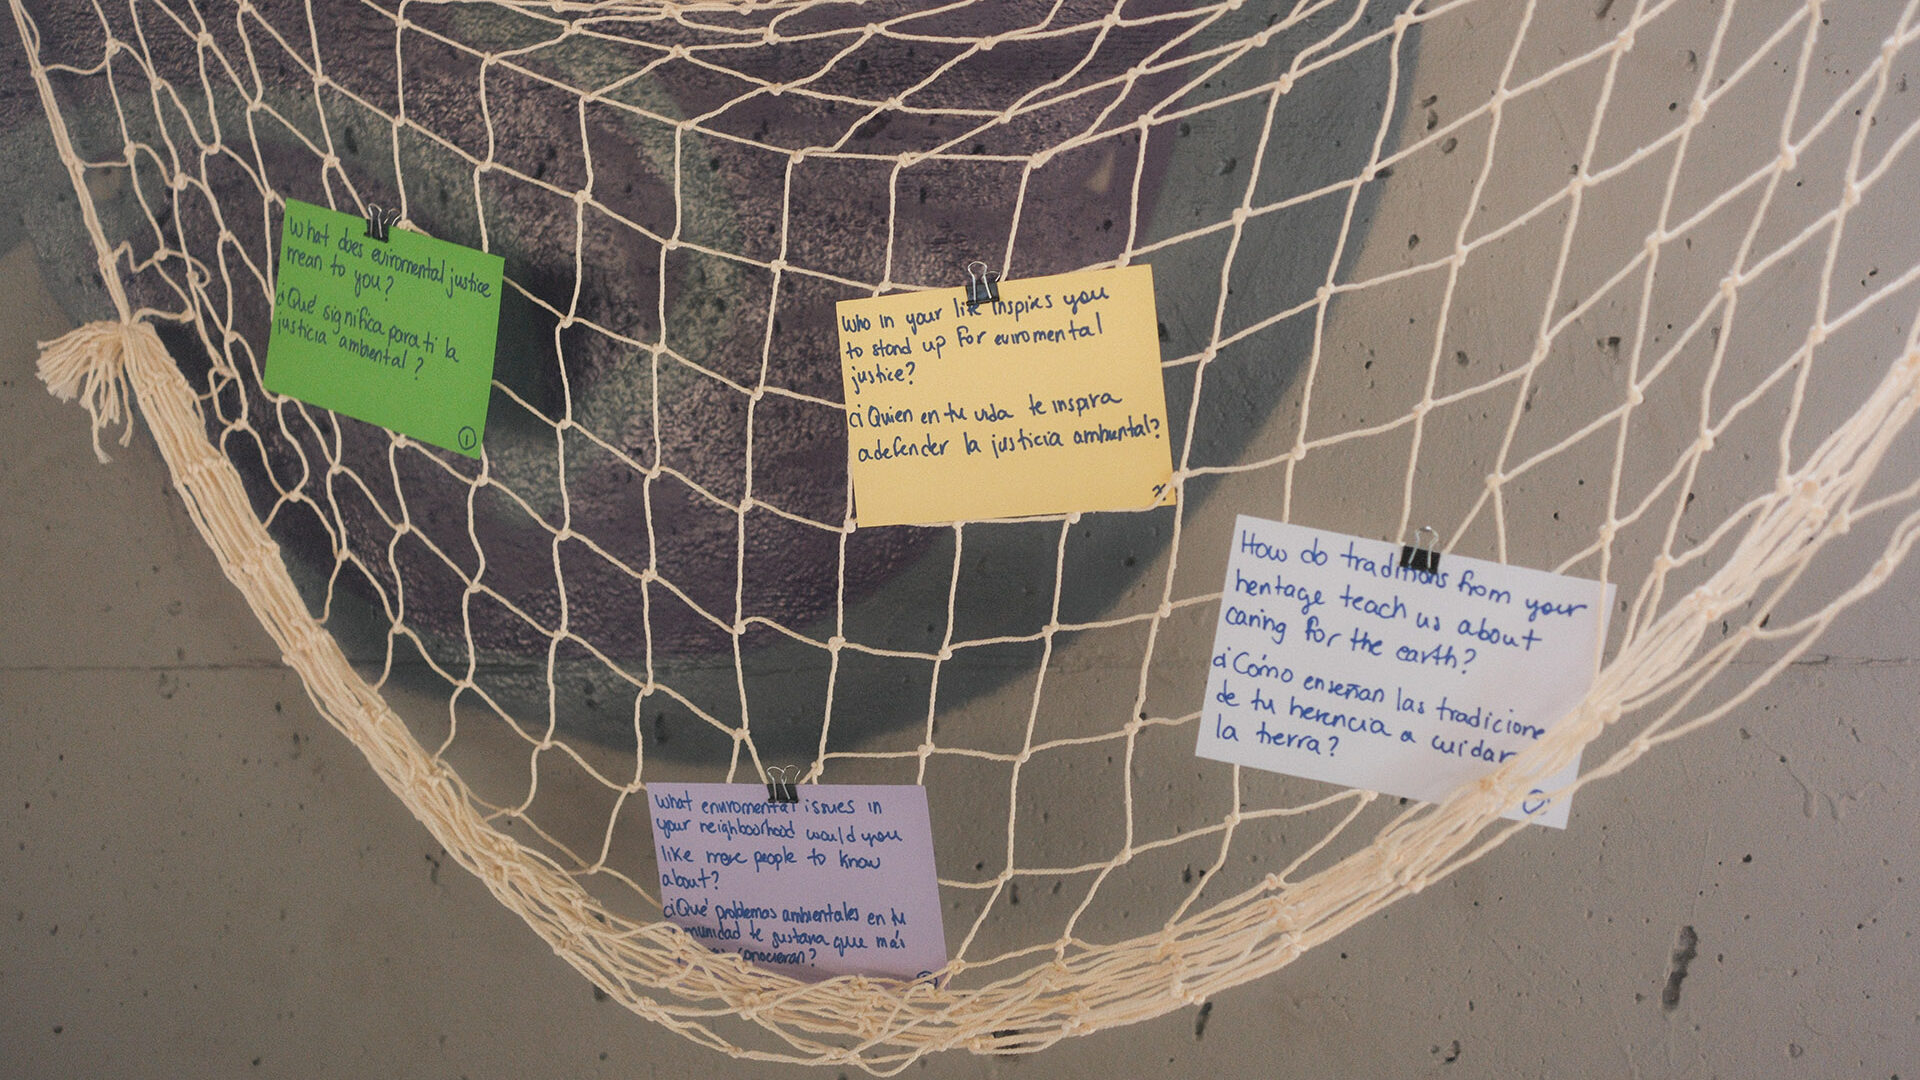 What does eviromental justice
mean to you?
¿Qué significa para ti la
justicia ambiental?
1
Who in your life inspires you
to stand up for eviromental
justice?
¿Quien en tu vida te inspira
a defender la justicia ambiental?
2
How do traditions from your
heritage teach us about
caring for the earth?
¿Cómo enseñan las tradicione
de tu herencia a cuidar
la tierra?
What enviromental issues in
your neighboorhood would you
like more people to know
about?
¿Qué problemas ambientales en tu
munidad te gustaria que más
conocieran?